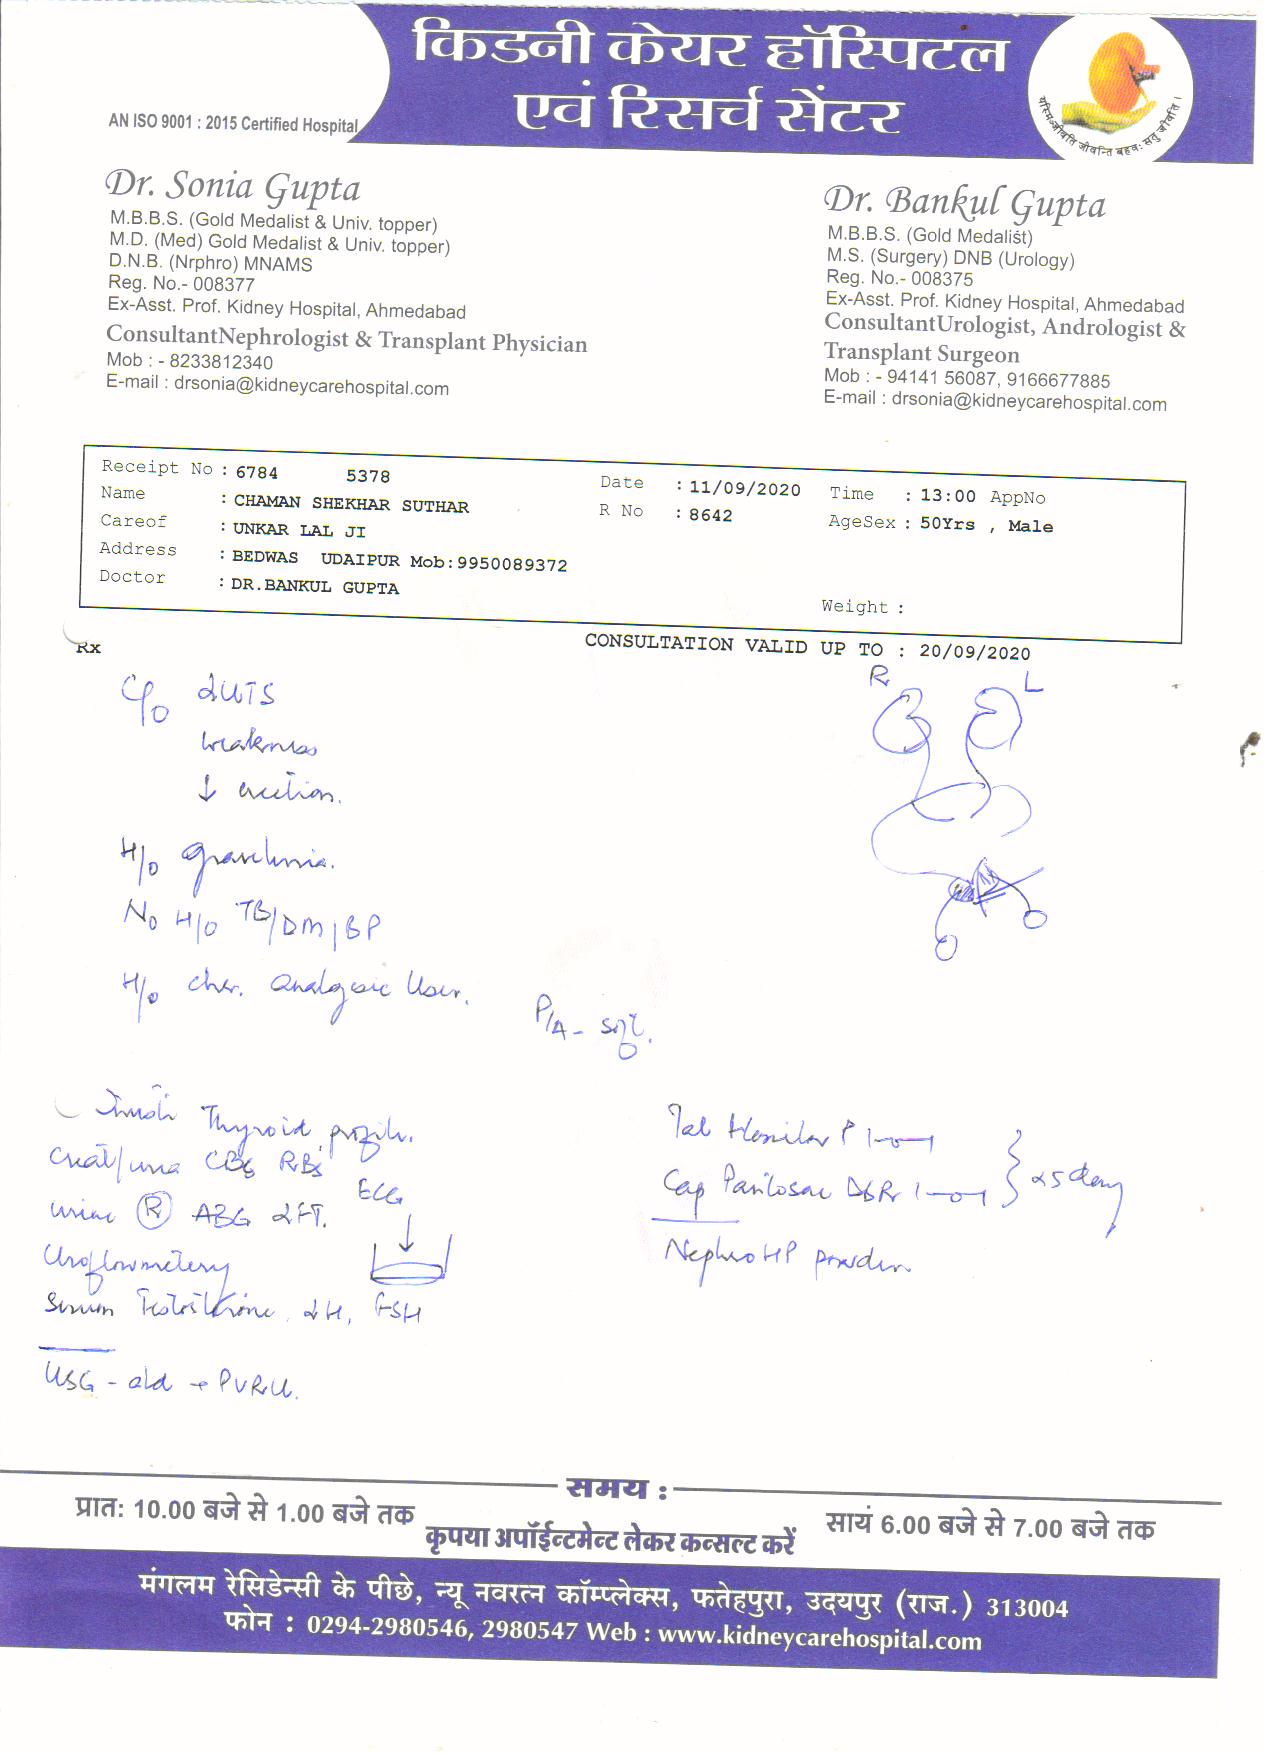 किडनी केयर हॉस्पिटल
एवं रिसर्च सेंटर
AN ISO 9001 : 2015 Certified Hospital
यस्मिञ्जीवति जीवन्ति बहवः सतु जीवति ।
Dr. Sonia Gupta
M.B.B.S. (Gold Medalist & Univ. topper)
M.D. (Med) Gold Medalist & Univ. topper)
D.N.B. (Nrphro) MNAMS
Reg. No.- 008377
Ex-Asst. Prof. Kidney Hospital, Ahmedabad
ConsultantNephrologist & Transplant Physician
Mob : - 8233812340
E-mail : drsonia@kidneycarehospital.com
Dr. Bankul Gupta
M.B.B.S. (Gold Medalist)
M.S. (Surgery) DNB (Urology)
Reg. No.- 008375
Ex-Asst. Prof. Kidney Hospital, Ahmedabad
ConsultantUrologist, Andrologist &
Transplant Surgeon
Mob : - 94141 56087, 9166677885
E-mail : drsonia@kidneycarehospital.com
Receipt No : 6784 5378 Date : 11/09/2020 Time : 13:00 AppNo
Name : CHAMAN SHEKHAR SUTHAR R No : 8642 AgeSex : 50Yrs , Male
Careof : UNKAR LAL JI
Address : BEDWAS UDAIPUR Mob:9950089372
Doctor : DR.BANKUL GUPTA
Weight :
Rx CONSULTATION VALID UP TO : 20/09/2020
C/o LUTS
weakness
↓ erection.
R L
H/o
No H/o TB/DM/BP
H/o chr. analgesic user.
P/A - soft.
Thyroid profile.
Creat/urea CBC RBS
ECG
urine R ABG LFT.
Uroflowmetery
Serum Testosterone, LH, FSH
USG - abd + PVRU.
Tab P 1-0-1
Cap DSR 1-0-1
x 5 day
Nephro HP powder.
समय :
प्रात: 10.00 बजे से 1.00 बजे तक
कृपया अपॉईन्टमेन्ट लेकर कन्सल्ट करें
सायं 6.00 बजे से 7.00 बजे तक
मंगलम रेसिडेन्सी के पीछे, न्यू नवरत्न कॉम्प्लेक्स, फतेहपुरा, उदयपुर (राज.) 313004
फोन : 0294-2980546, 2980547 Web : www.kidneycarehospital.com